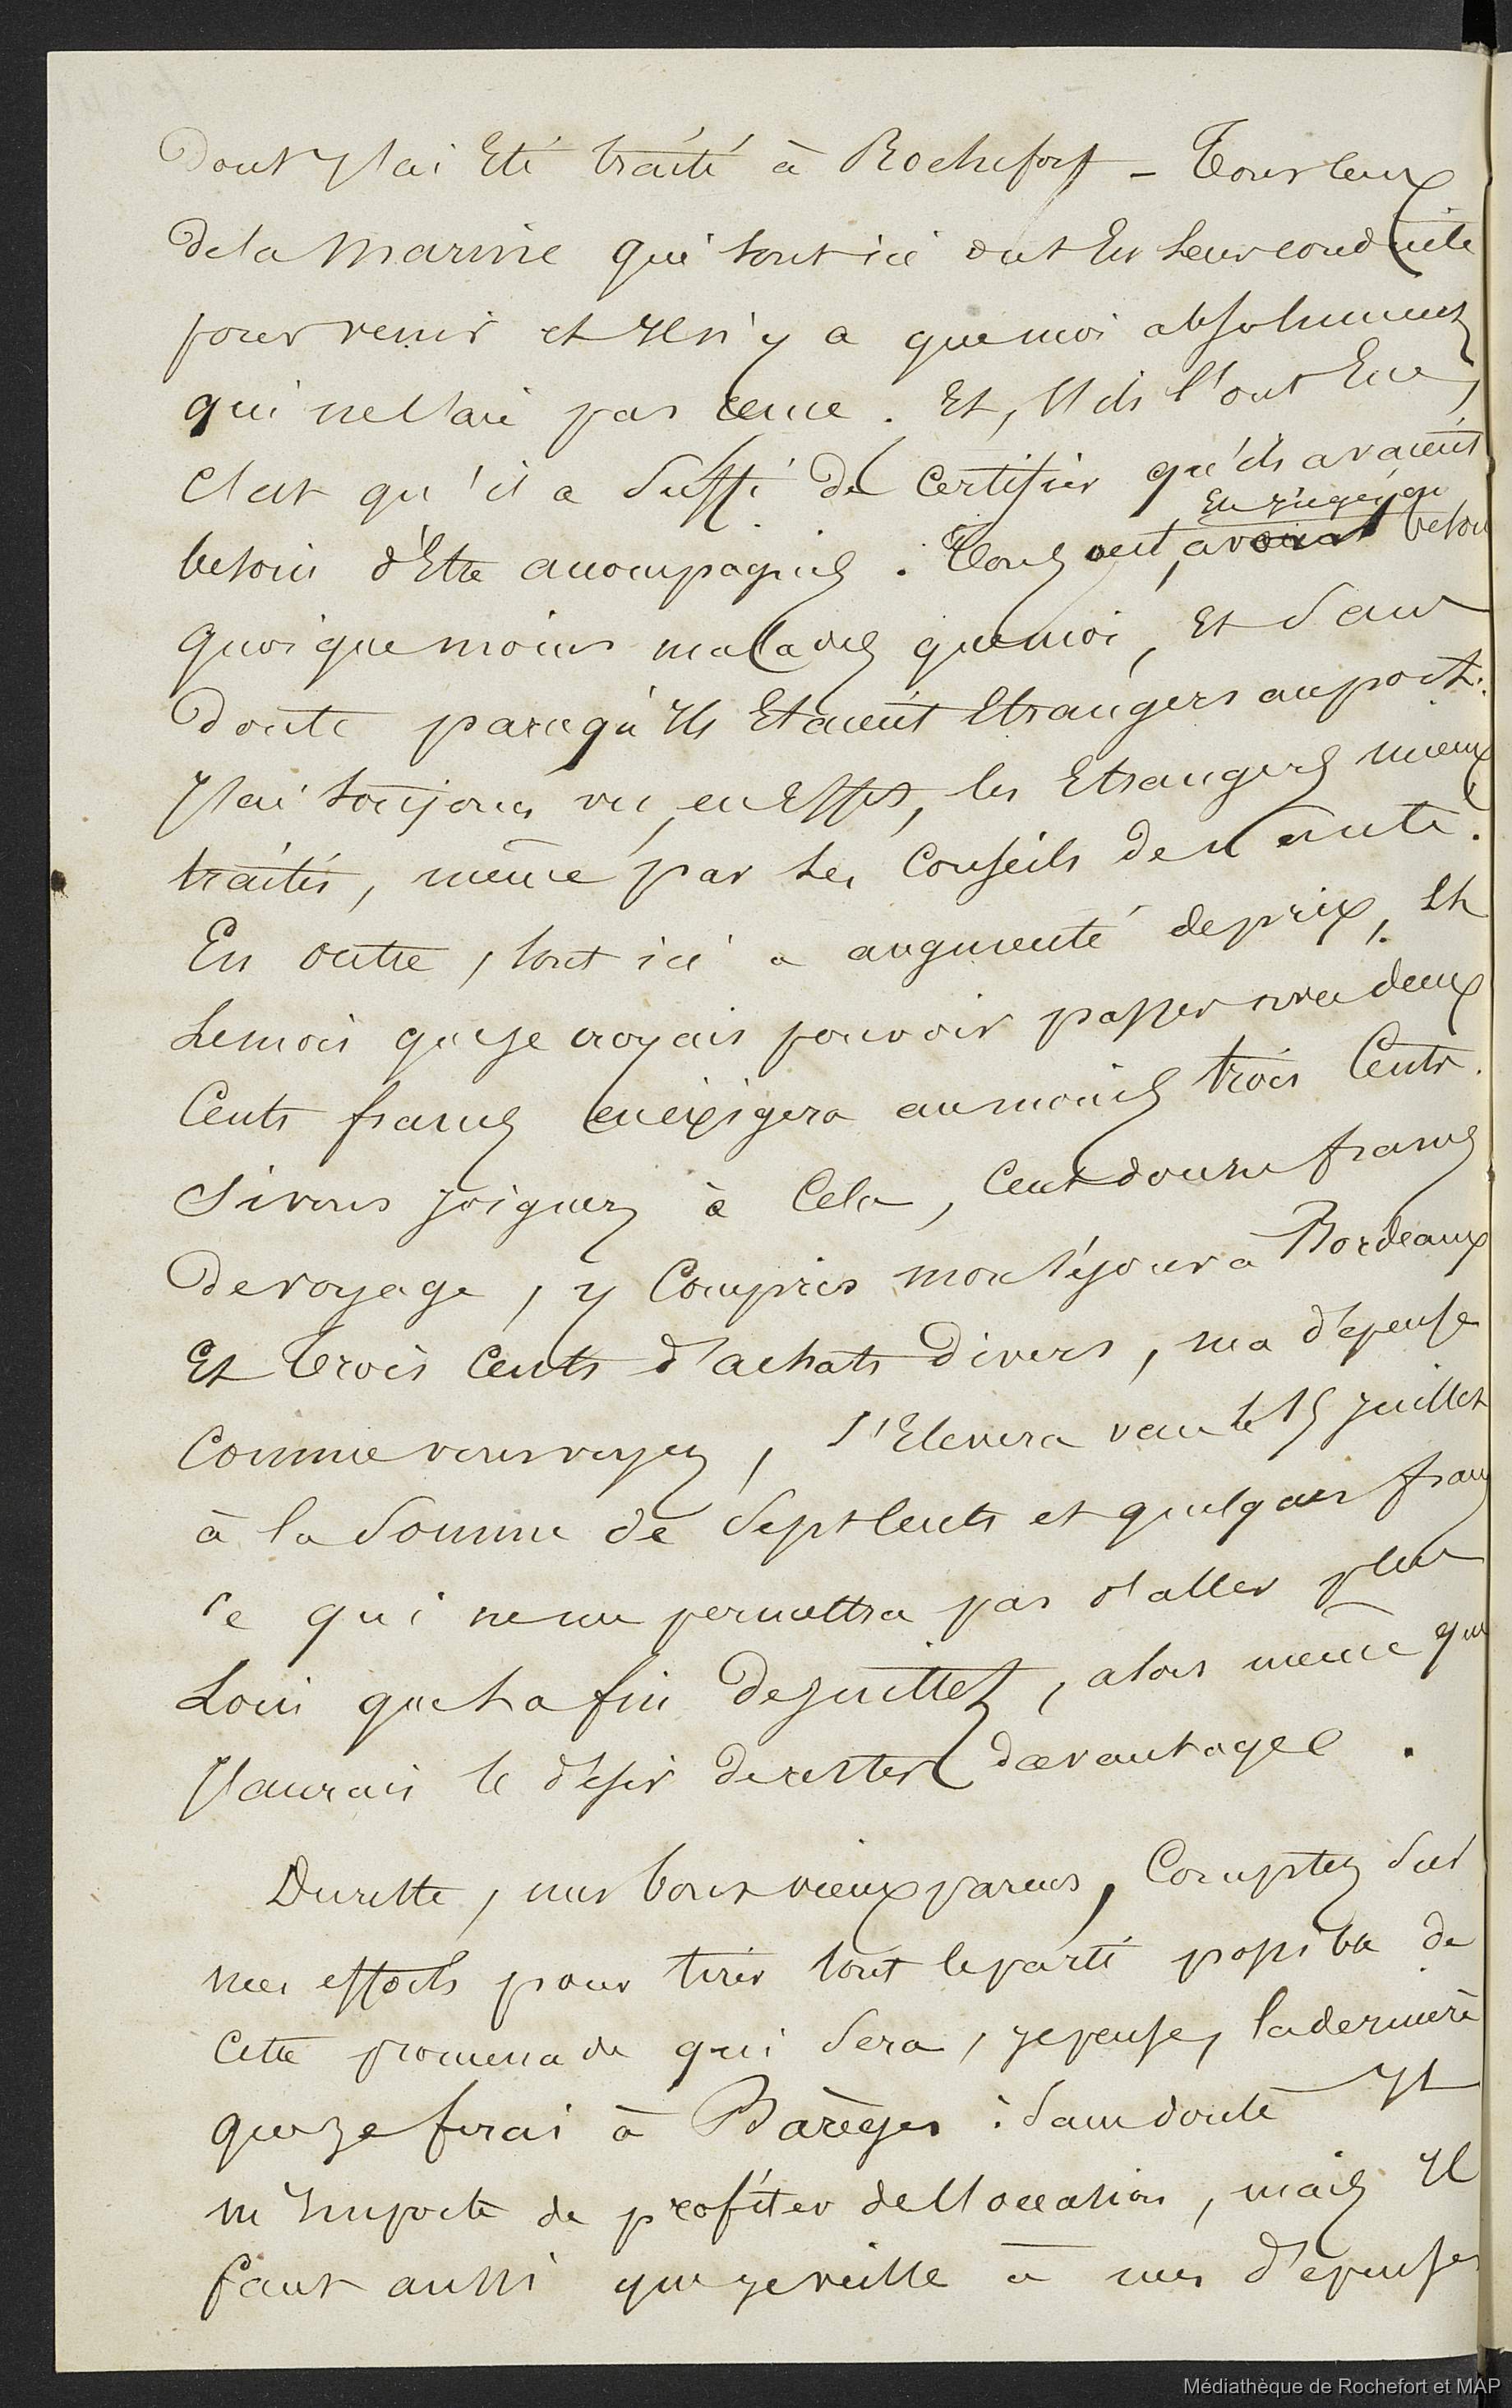 dont j'ai été traité à Rochefort _ Tous ceux
de la Marine qui sont ici ont eu leur conduite
pour venir et Il n'y a que moi absolument
qui ne l'aie pas eue. Et, s'ils l'ont eue,
c'est qu'il a suffi de certifier qu'ils avaient
besoin d'être accompagnés. Tous ont, avoir besoin
quoique moins malades que moi, et sans
doute parcequ'Ils étaient étrangers au port.
J'ai toujours vu, en effet, les étrangers mieux
traités, même par les Conseils de santé.
En outre, tout ici a augmenté de prix, et
le mois que je croyais pouvoir passer avec deux
Cents francs en exigera au moins trois Cents.
Si vous joignez à Cela, Cent douze francs
de voyage, y Compris mon séjour à Bordeaux
et Trois Cents d'achats divers, ma dépense
Comme vous voyez, s'élevera vers le 15 juillet
à la somme de sept cents et quelques francs
ce qui ne me permettra pas d'aller plus
loin que la fin de juillet, alors même que
J'aurais le désir de rester davantage.
Du reste, mes bons vieux parens, Comptez sur
mes efforts pour tirer tout le parti possible de
cette promenade qui sera, je pense, la dernière
que je ferai à Barèges : sans doute Il
m'Importe de profiter de l'occasion, mais Il
faut aussi que je veille à mes dépenses
Médiathèque de Rochefort et MAP